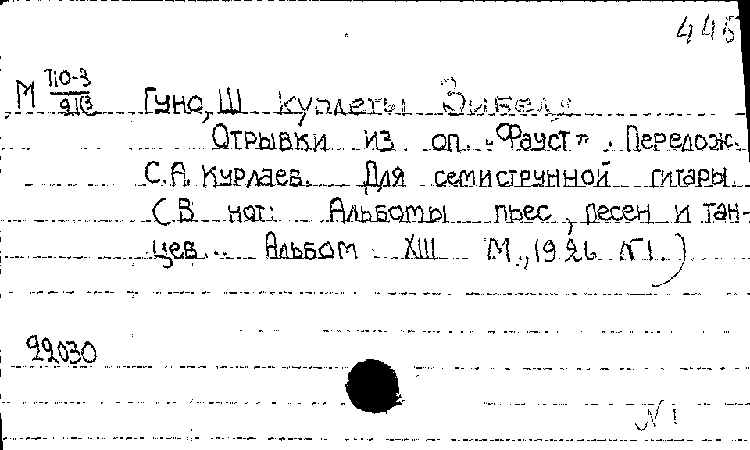 445
М П0-3/913 Гуно, Ш Куплеты Зибеля
Отрывки из оп. „Фауст". Перелож.
С.А. Курлаев. Для семиструнной гитары
(В нот: Альбомы пьес, песен и тан-
цев.. Альбом XIII М., 1926 №1.)
22030
№1